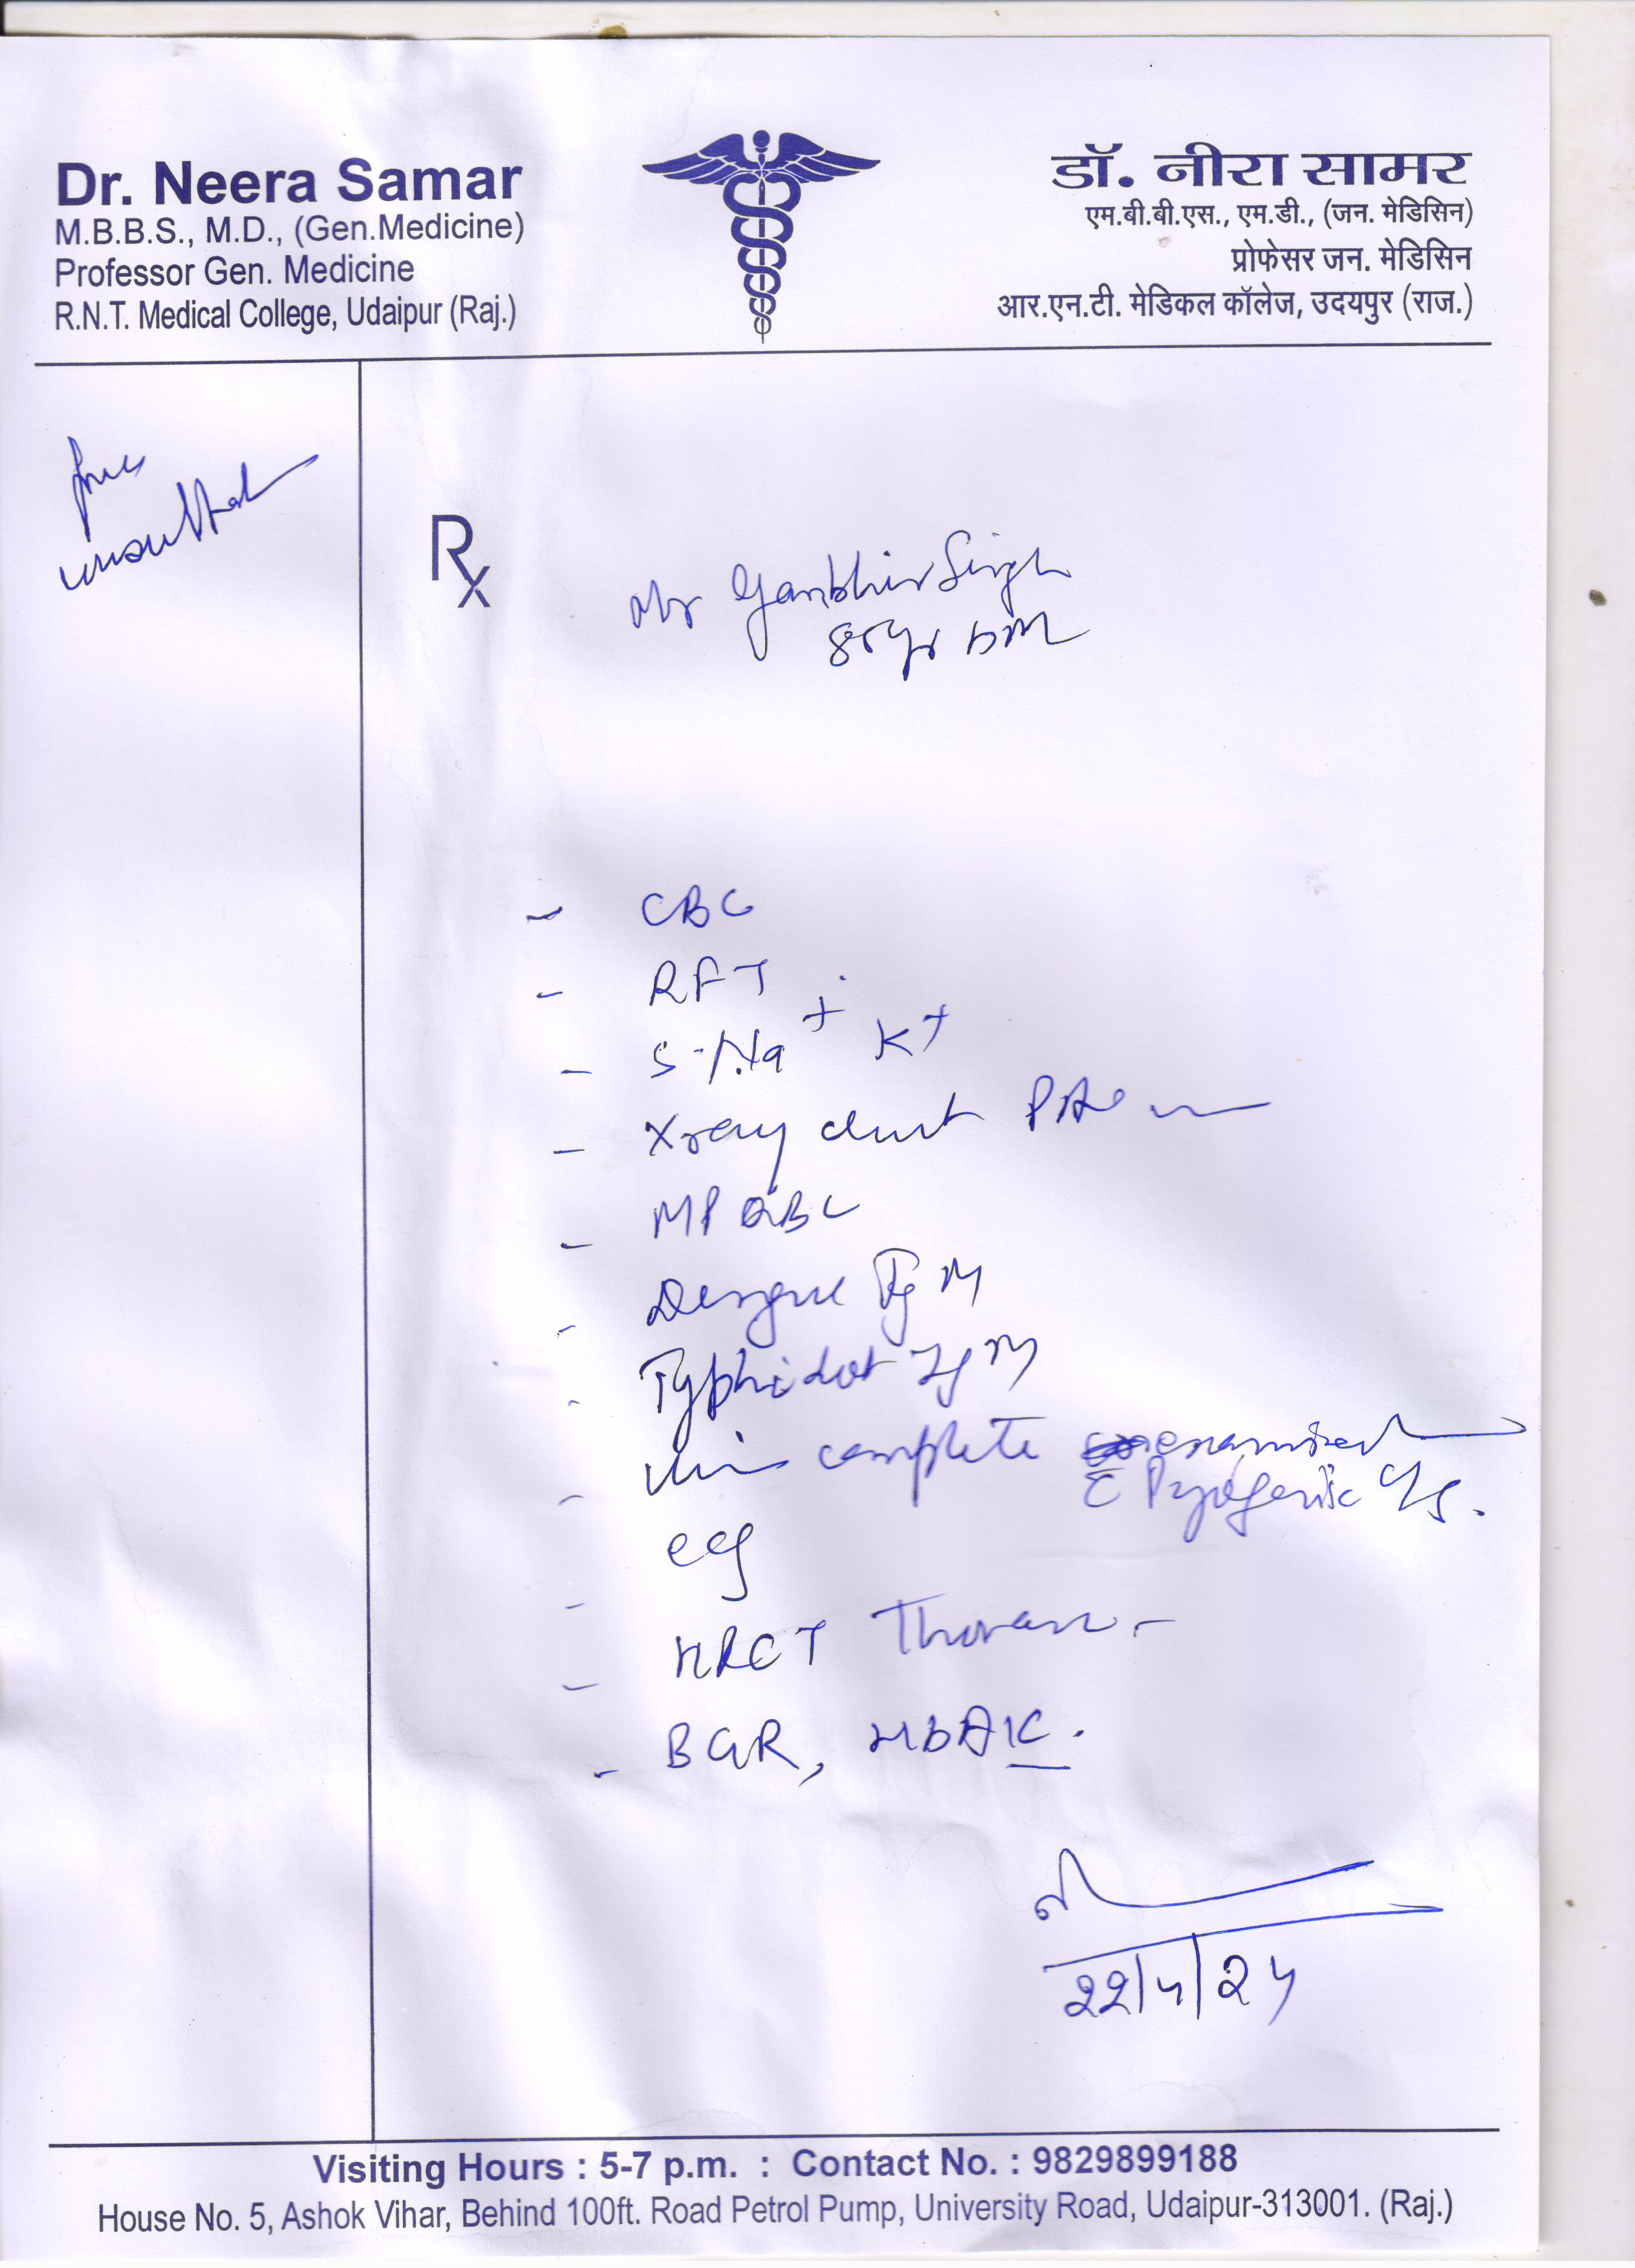 Dr. Neera Samar
M.B.B.S., M.D., (Gen.Medicine)
Professor Gen. Medicine
R.N.T. Medical College, Udaipur (Raj.)
डॉ. नीरा सामर
एम.बी.बी.एस., एम.डी., (जन. मेडिसिन)
प्रोफेसर जन. मेडिसिन
आर.एन.टी. मेडिकल कॉलेज, उदयपुर (राज.)
free
Rx
Mr Gambhir Singh
yr DM
- CBC
- RFT
- S. Na+ K+
- Xray chest PA
- MP QBC
- Dengue IgM
- Typhidot IgM
- complete
c Pyogenic C/S.
- ecg
- HRCT Thorax -
- BGR, HbA1C.
22/5/25
Visiting Hours : 5-7 p.m. : Contact No. : 9829899188
House No. 5, Ashok Vihar, Behind 100ft. Road Petrol Pump, University Road, Udaipur-313001. (Raj.)